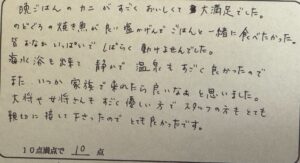 頭ごはんのカニがすごくおいしくて大満足でした。
のどぐろの焼き魚が良い塩かげんでごはんと一緒に食べたかった。
皆おなかいっぱいで しばらく動けませんでした。
海水浴も出来て 静かで 温泉もすごく良かったので
また、いつか 家族で来れたら良いなぁと思いました。
大将や女将さんもすごく優しい方で スタッフの方もとても
親切に接して下さったのでとても良かったです。
10点満点で 10 点